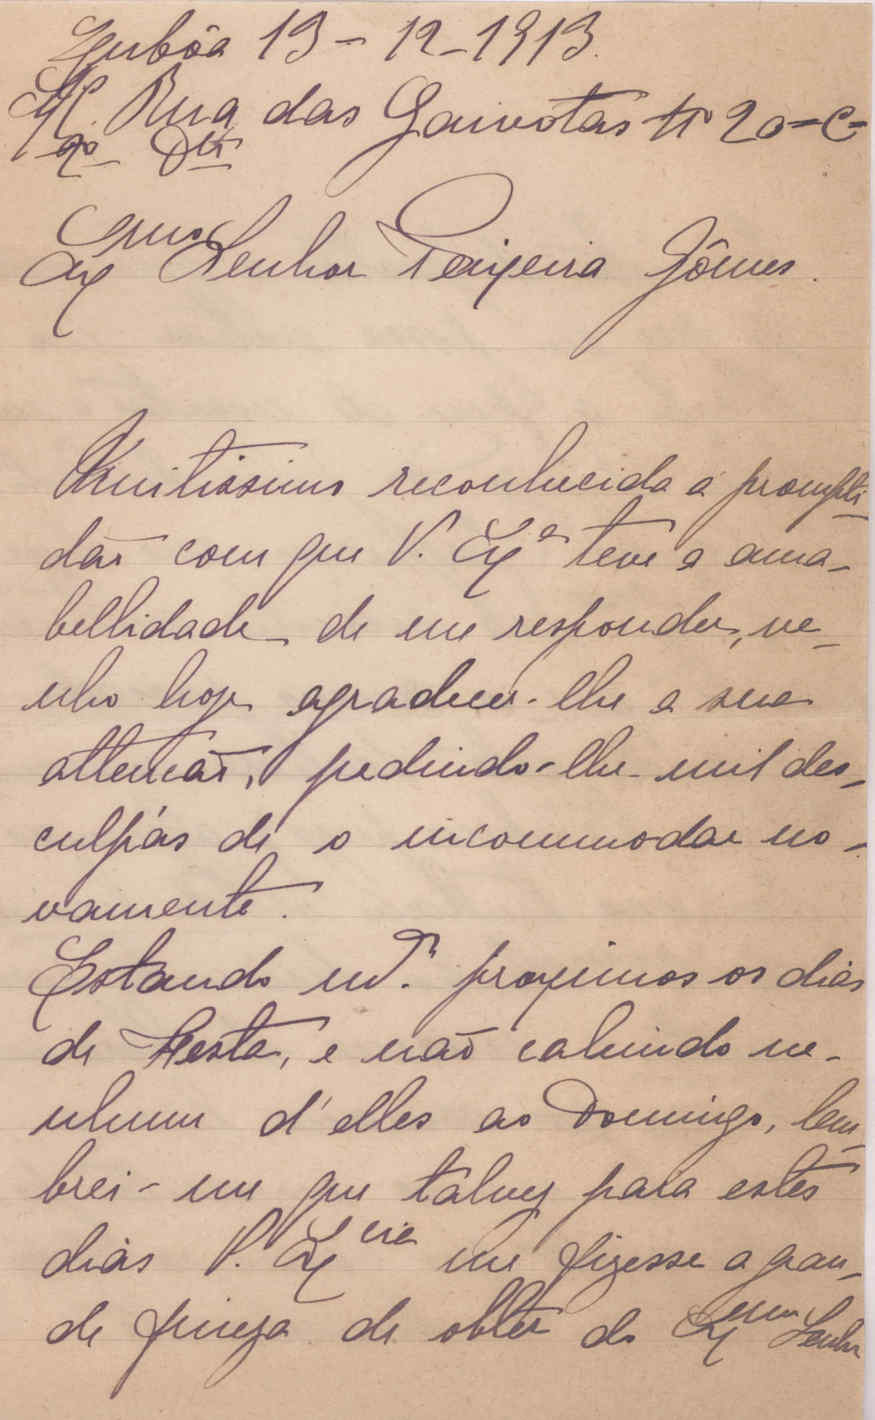 Lisbôa 13-12-1913.
Rua das Gaivotas Nº 20-C-
2º Dto
Exmo Senhor Teixeira Gômes.
Muitissimo reconhecida á prompti-
dão com que V. Exa teve a ama-
bellidade de me responder, ve-
nho hoje agradecer-lhe a sua
attenção, pedindo-lhe mil des-
culpas de o incommodar no-
vamente.
Estando mto. proximos os dias
de Festa, e não cahindo ne-
nhum d'elles ao Domingo, lem-
brei-me que talvez para estes
dias V. Excia me fizesse a gran-
de fineza de obter do Exmo Senhor